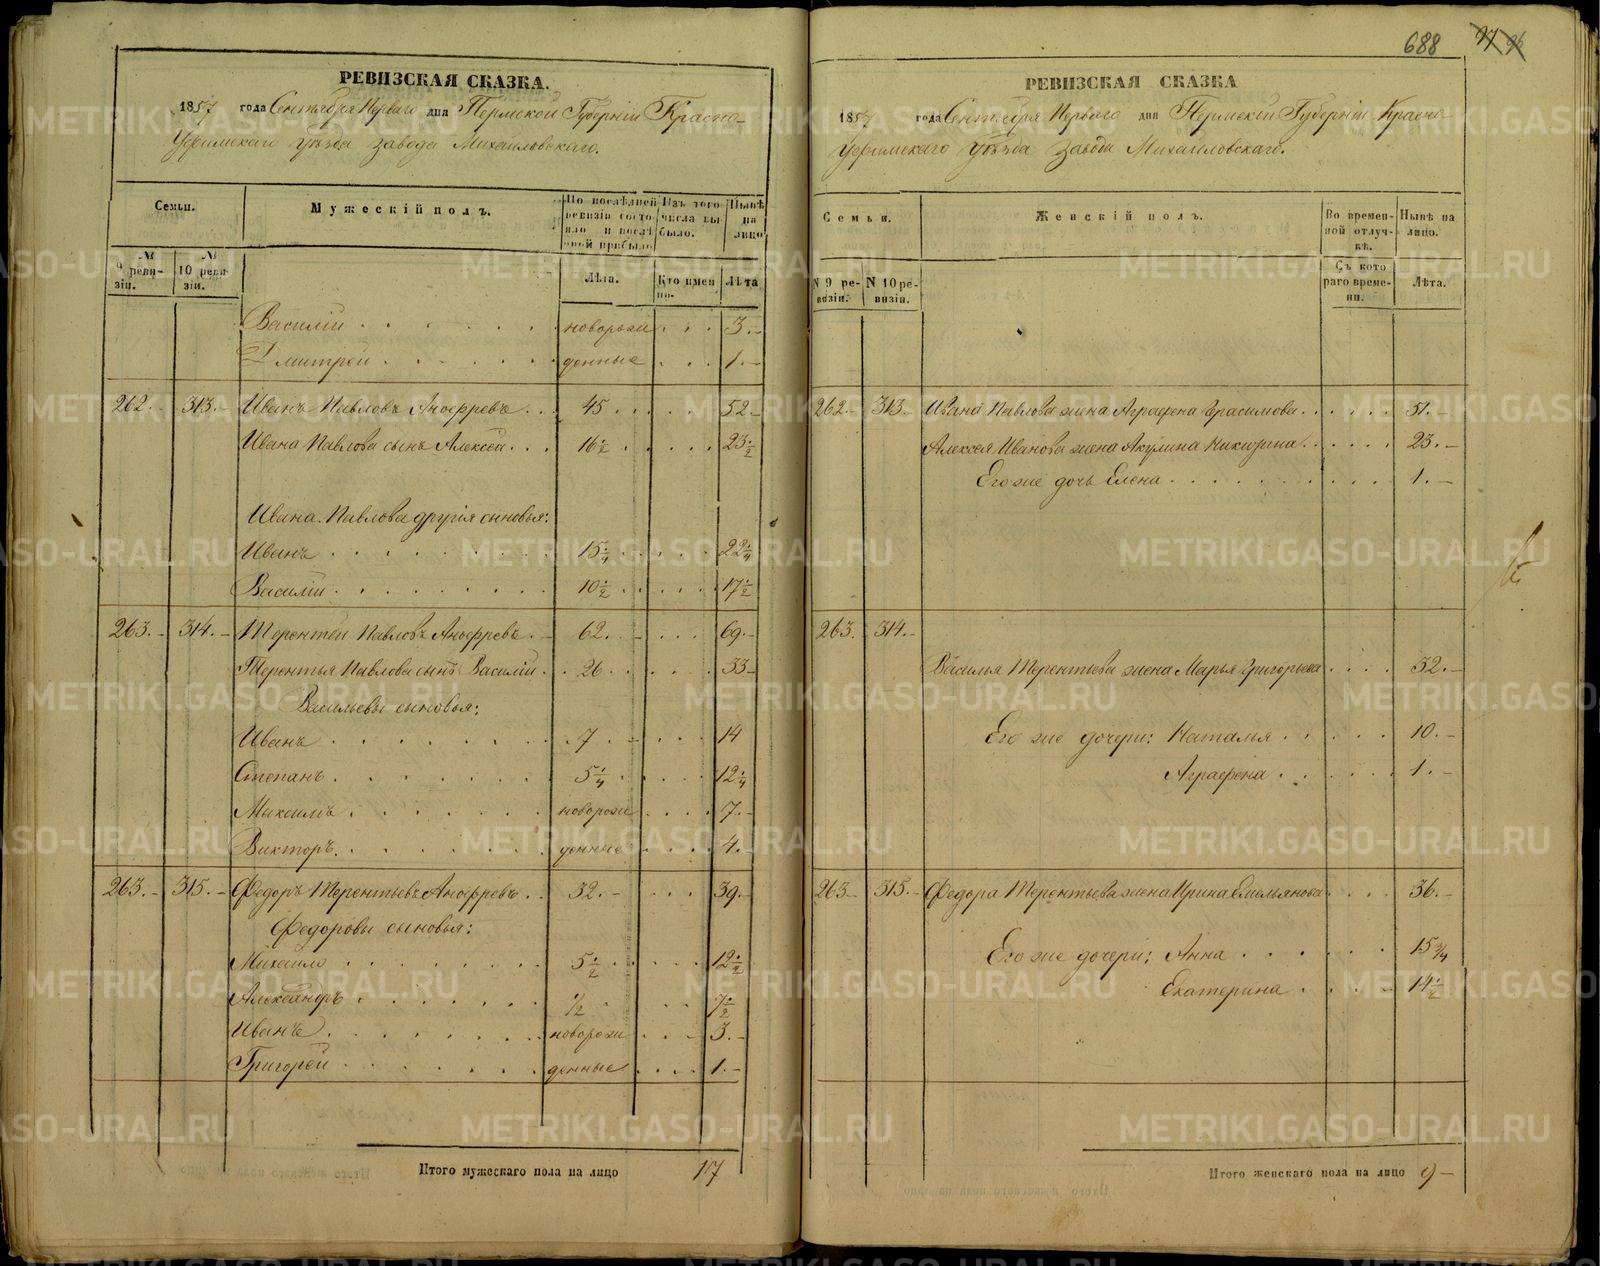 РЕВИЗСКАЯ СКАЗКА.
1857 года Сентября Перваго дня Пермской Губерніи Красно-
Уфимскаго Уѣзда завода Михайловскаго.
Семьи.
Мужескій полъ.
По послѣдней ревизіи состояло и послѣ оной прибыло
Изъ того числа выбыло.
Нынѣ на лицо
№ 9 ревизіи.
№ 10 ревизіи.
Лѣта.
Кто именно.
Лѣта
Василій новорож 3.
Дмитрей денные 1.
262. 313. Иванъ Павловъ Аноѳревъ 45 52.
Ивана Павлова сынъ Алексей 16 1/2 23 1/2
Ивана Павлова другія сыновья:
Иванъ 15 1/4 22 1/4
Василій 10 1/2 17 1/2
263. 314. Терентей Павловъ Аноѳревъ 62. 69.
Терентья Павлова сынъ Василій 26 33
Васильевы сыновья:
Иванъ 7 14
Степанъ 5 1/4 12 1/4
Максимъ новорож 7.
Викторъ денные 4.
263. 315. Федоръ Терентьевъ Аноѳревъ 32. 39.
Федоровы сыновья:
Михайло 5 1/2 12 1/2
Александръ 1/2 7 1/2
Иванъ новорож 3.
Григорей денные 1.
Итого мужескаго пола на лицо 17
688
РЕВИЗСКАЯ СКАЗКА
1857 года Сентября Перваго дня Пермской Губерніи Красно
Уфимскаго Уѣзда Завода Михайловскаго.
Семьи.
Женскій полъ.
Во временной отлучкѣ.
Нынѣ на лицо.
N 9 ревизіи.
N 10 ревизіи.
Съ котораго времени.
Лѣта.
262 313 Ивана Павлова жена Аграфена Герасимова 51.
Алексея Иванова жена Акулина Никитина 23.
Его же дочь Елена 1.
263. 314.
Василья Терентьева жена Марья Григорьева 32.
Его же дочери: Наталья 10.
Аграфена 1.
263 315 Федора Терентьева жена Ирина Емельянова 36.
Его же дочери: Анна 15 3/4
Екатерина 14 1/2
Итого женскаго пола на лицо 9
METRIKI.GASO-URAL.RU